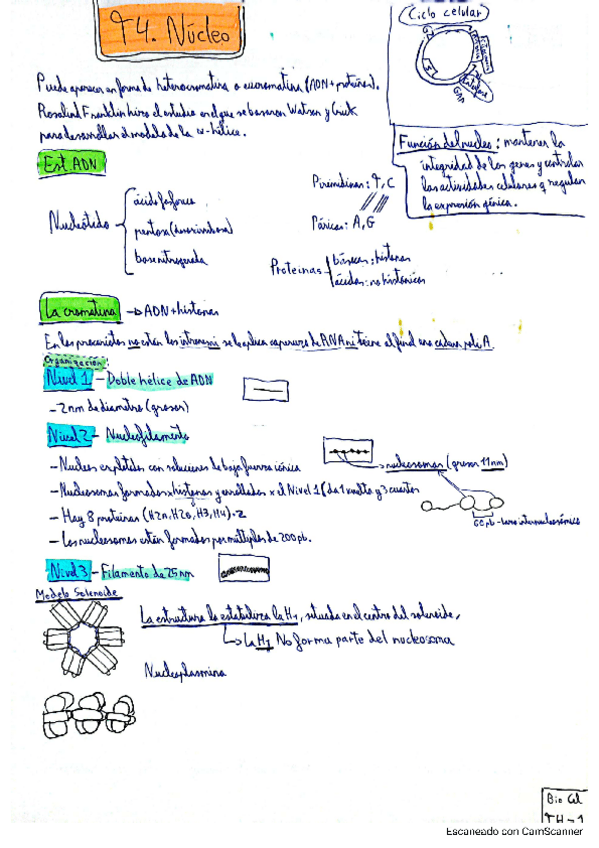 T4. Núcleo
Ciclo celular
G1
S
G2
Puede aparecer en forma de heterocromatina o eucromatina (ADN + proteínas).
Rosalind Franklin hizo el estudio en el que se basaron Watson y Crick
para desarrollar el modelo de la α-hélice.
Función del núcleo: mantener la
integridad de los genes y controlar
las actividades celulares q regulan
la expresión génica.
Est. ADN
Nucleótido
ácido fosfórico
pentosa (desoxirribosa)
base nitrogenada
Pirimidinas: T, C
Púricas: A, G
Proteínas
básicas: histonas
ácidas: no histónicas
La cromatina → ADN + histonas
En los procariotas no están los intrones ni se le aplica caperuza de ARN ni tiene al final una cadena poli A.
Organización:
Nivel 1 - Doble hélice de ADN
- 2nm de diametro (grosor)
Nivel 2 - Nucleofilamento
- Núcleos explotados con soluciones de baja fuerza iónica
nucleosomas (grosor 11nm)
- Nucleosomas formados x histonas y enrollados x el Nivel 1 (da 1 vuelta y 3 cuartos
- Hay 8 proteínas (H2A, H2B, H3, H4)·2
60 pb - tramo internucleosómico
- Los nucleosomas están formados por múltiplos de 200 pb.
Nivel 3 - Filamento de 25nm
Modelo Solenoide
La estructura la estabiliza la H1, situada en el centro del solenoide,
→ La H1 No forma parte del nucleosoma
Nucleoplasmina
Bio Cel
T4-1
Escaneado con CamScanner